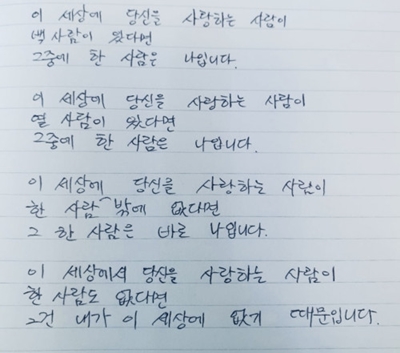 이 세상에 당신을 사랑하는 사람이
백 사람이 있다면
그중에 한 사람은 나입니다.
이 세상에 당신을 사랑하는 사람이
열 사람이 있다면
그중에 한 사람은 나입니다.
이 세상에 당신을 사랑하는 사람이
한 사람 밖에 없다면
그 한 사람은 바로 나입니다.
이 세상에서 당신을 사랑하는 사람이
한 사람도 없다면
그건 내가 이 세상에 없기 때문입니다.